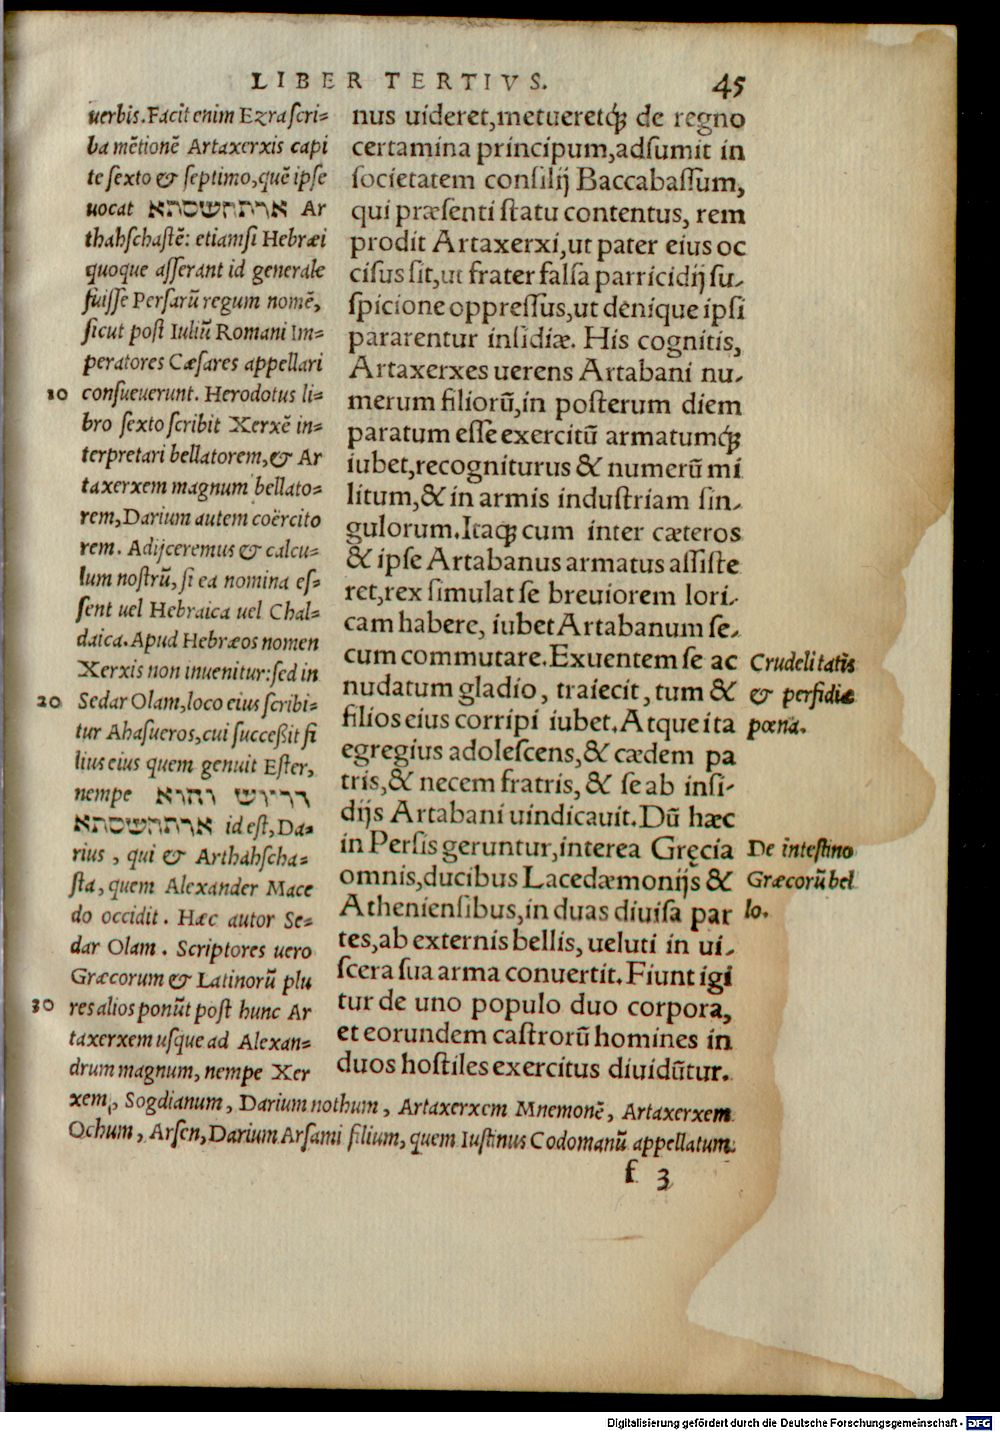 LIBER TERTIVS. 45
uerbis. Facit enim Ezra scri=
ba mẽtionẽ Artaxerxis capi
te sexto & septimo, quẽ ipse
uocat ארתחשסתא Ar
thahschastẽ: etiamsi Hebræi
quoque asserant id generale
fuisse Persarũ regum nomẽ,
sicut post Iuliũ Romani Im=
peratores Cæsares appellari
10 consueuerunt. Herodotus li=
bro sexto scribit Xerxẽ in=
terpretari bellatorem, & Ar
taxerxem magnum bellato=
rem, Darium autem coërcito
rem. Adijceremus & calcu=
lum nostrũ, si ea nomina es=
sent uel Hebraica uel Chal=
daica. Apud Hebræos nomen
Xerxis non inuenitur: sed in
20 Sedar Olam, loco eius scribi=
tur Ahasueros, cui succeßit fi
lius eius quem genuit Ester,
nempe דריוש והוא
ארתחשסתא id est, Da=
rius, qui & Arthahscha=
sta, quem Alexander Mace
do occidit. Hæc autor Se=
dar Olam. Scriptores uero
Græcorum & Latinorũ plu
30 res alios ponũt post hunc Ar
taxerxem usque ad Alexan=
drum magnum, nempe Xer
xem, Sogdianum, Darium nothum, Artaxerxem Mnemonẽ, Artaxerxem
Ochum, Arsen, Darium Arsami filium, quem Iustinus Codomanũ appellatum
nus uideret, metueretq́; de regno
certamina principum, adsumit in
societatem consilij Baccabassum,
qui præsenti statu contentus, rem
prodit Artaxerxi, ut pater eius oc
cisus sit, ut frater falsa parricidij su-
spicione oppressus, ut denique ipsi
pararentur insidiæ. His cognitis,
Artaxerxes uerens Artabani nu-
merum filiorũ, in posterum diem
paratum esse exercitũ armatumq́;
iubet, recogniturus & numerũ mi
litum, & in armis industriam sin-
gulorum. Itaq; cum inter cæteros
& ipse Artabanus armatus assiste
ret, rex simulat se breuiorem lori-
cam habere, iubet Artabanum se-
cum commutare. Exuentem se ac
nudatum gladio, traiecit, tum &
filios eius corripi iubet. Atque ita
egregius adolescens, & cædem pa
tris, & necem fratris, & se ab insi-
dijs Artabani uindicauit. Dũ hæc
in Persis geruntur, interea Gręcia
omnis, ducibus Lacedæmonijs &
Atheniensibus, in duas diuisa par
tes, ab externis bellis, ueluti in ui-
scera sua arma conuertit. Fiunt igi
tur de uno populo duo corpora,
et eorundem castrorũ homines in
duos hostiles exercitus diuidũtur.
Crudelitatis
& perfidiæ
pœna.
De intestino
Græcorũ bel
lo.
f 3
Digitalisierung gefördert durch die Deutsche Forschungsgemeinschaft - DFG